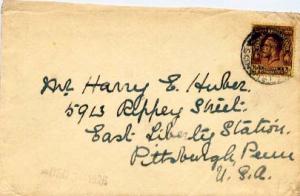 Mr. Harry E. Huber.
5913 Rippey Street.
East Liberty Station.
Pittsburgh, Penn
U.S.A.